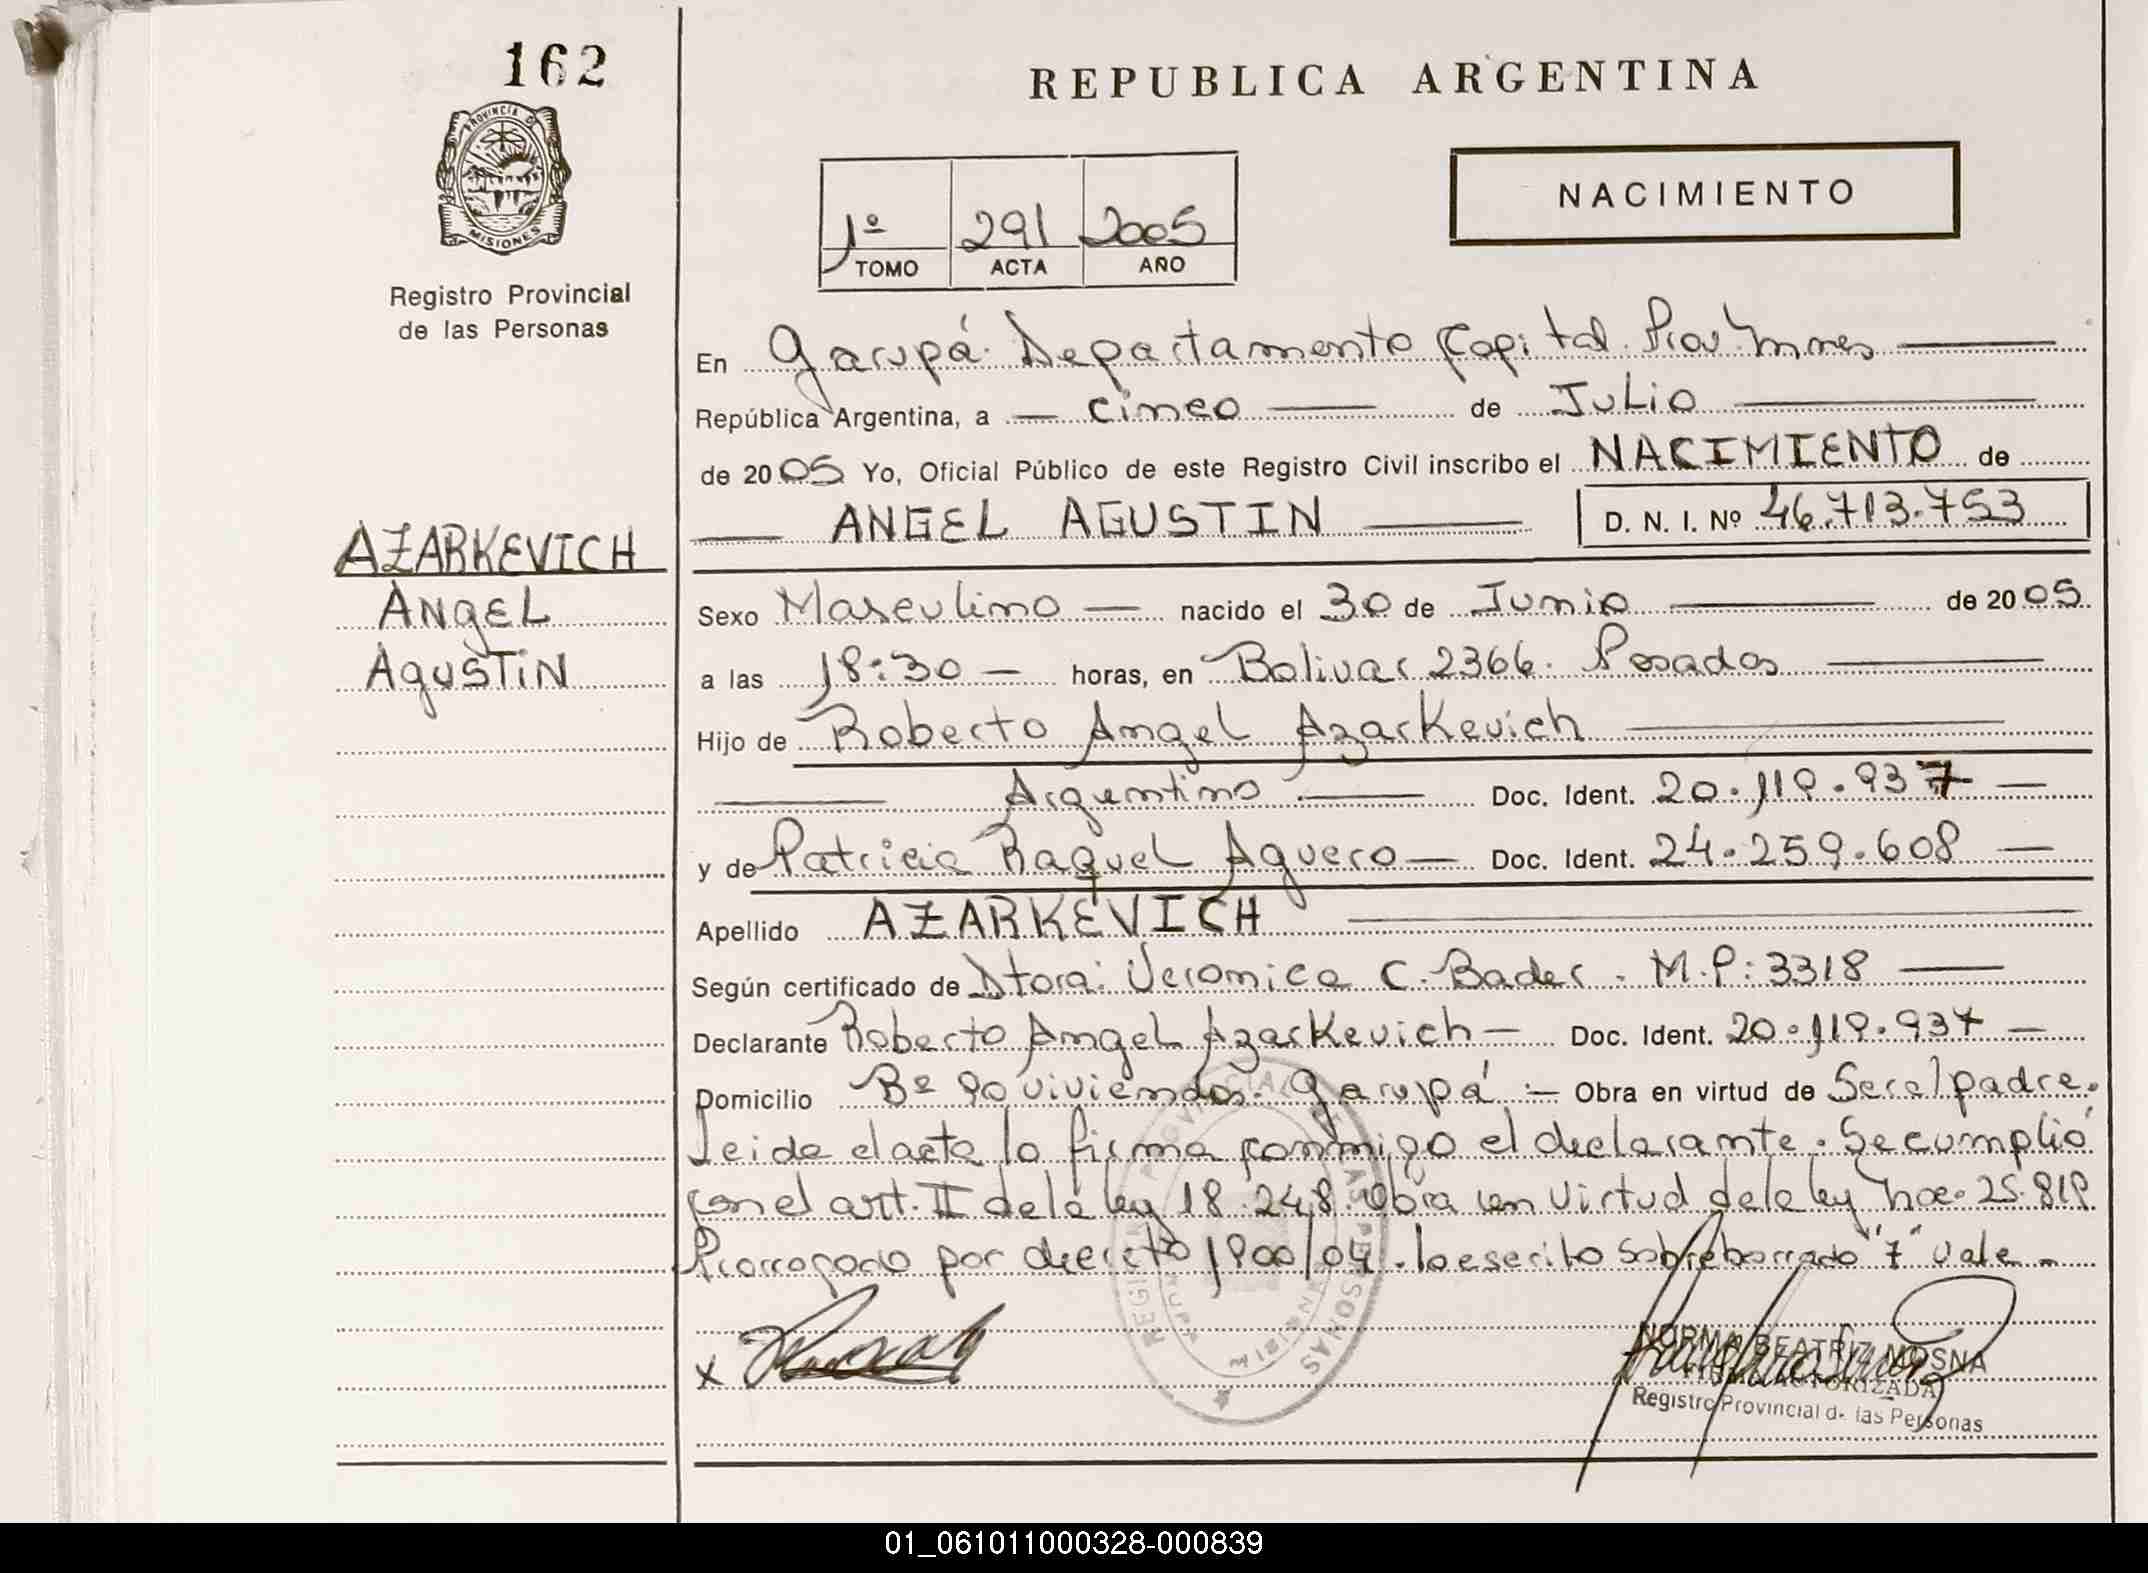 162
PROVINCIA DE
MISIONES
Registro Provincial
de las Personas
REPUBLICA ARGENTINA
NACIMIENTO
1º 291 2005
TOMO ACTA AÑO
En Garupá. Departamento Capital. Prov. Mnes
República Argentina, a cinco de Julio
de 2005 Yo, Oficial Público de este Registro Civil inscribo el NACIMIENTO de
ANGEL AGUSTIN D. N. I. Nº 46.713.753
AZARKEVICH
ANGEL
AGUSTIN
Sexo Masculino nacido el 30 de Junio de 2005
a las 18:30 horas, en Bolivar 2366. Posadas
Hijo de Roberto Angel Azarkevich
Argentino Doc. Ident. 20.119.937
y de Patricia Raquel Aguero Doc. Ident. 24.259.608
Apellido AZARKEVICH
Según certificado de Dtora: Veronica C. Bader. M.P: 3318
Declarante Roberto Angel Azarkevich Doc. Ident. 20.119.937
Domicilio Bº 90 viviendas. Garupá Obra en virtud de Ser el padre.
Leida el acta la firma conmigo el declarante. Se cumplió
con el art. II de la ley 18.248. Obra en virtud de la ley Nac. 25.819
Prorrogado por decreto 1900/04. lo escrito sobreborrado "7" vale
REGISTRO PROVINCIAL DE LAS PERSONAS
X
NORMA BEATRIZ MOSNA
FIRMA AUTORIZADA
Registro Provincial de las Personas
01_061011000328-000839